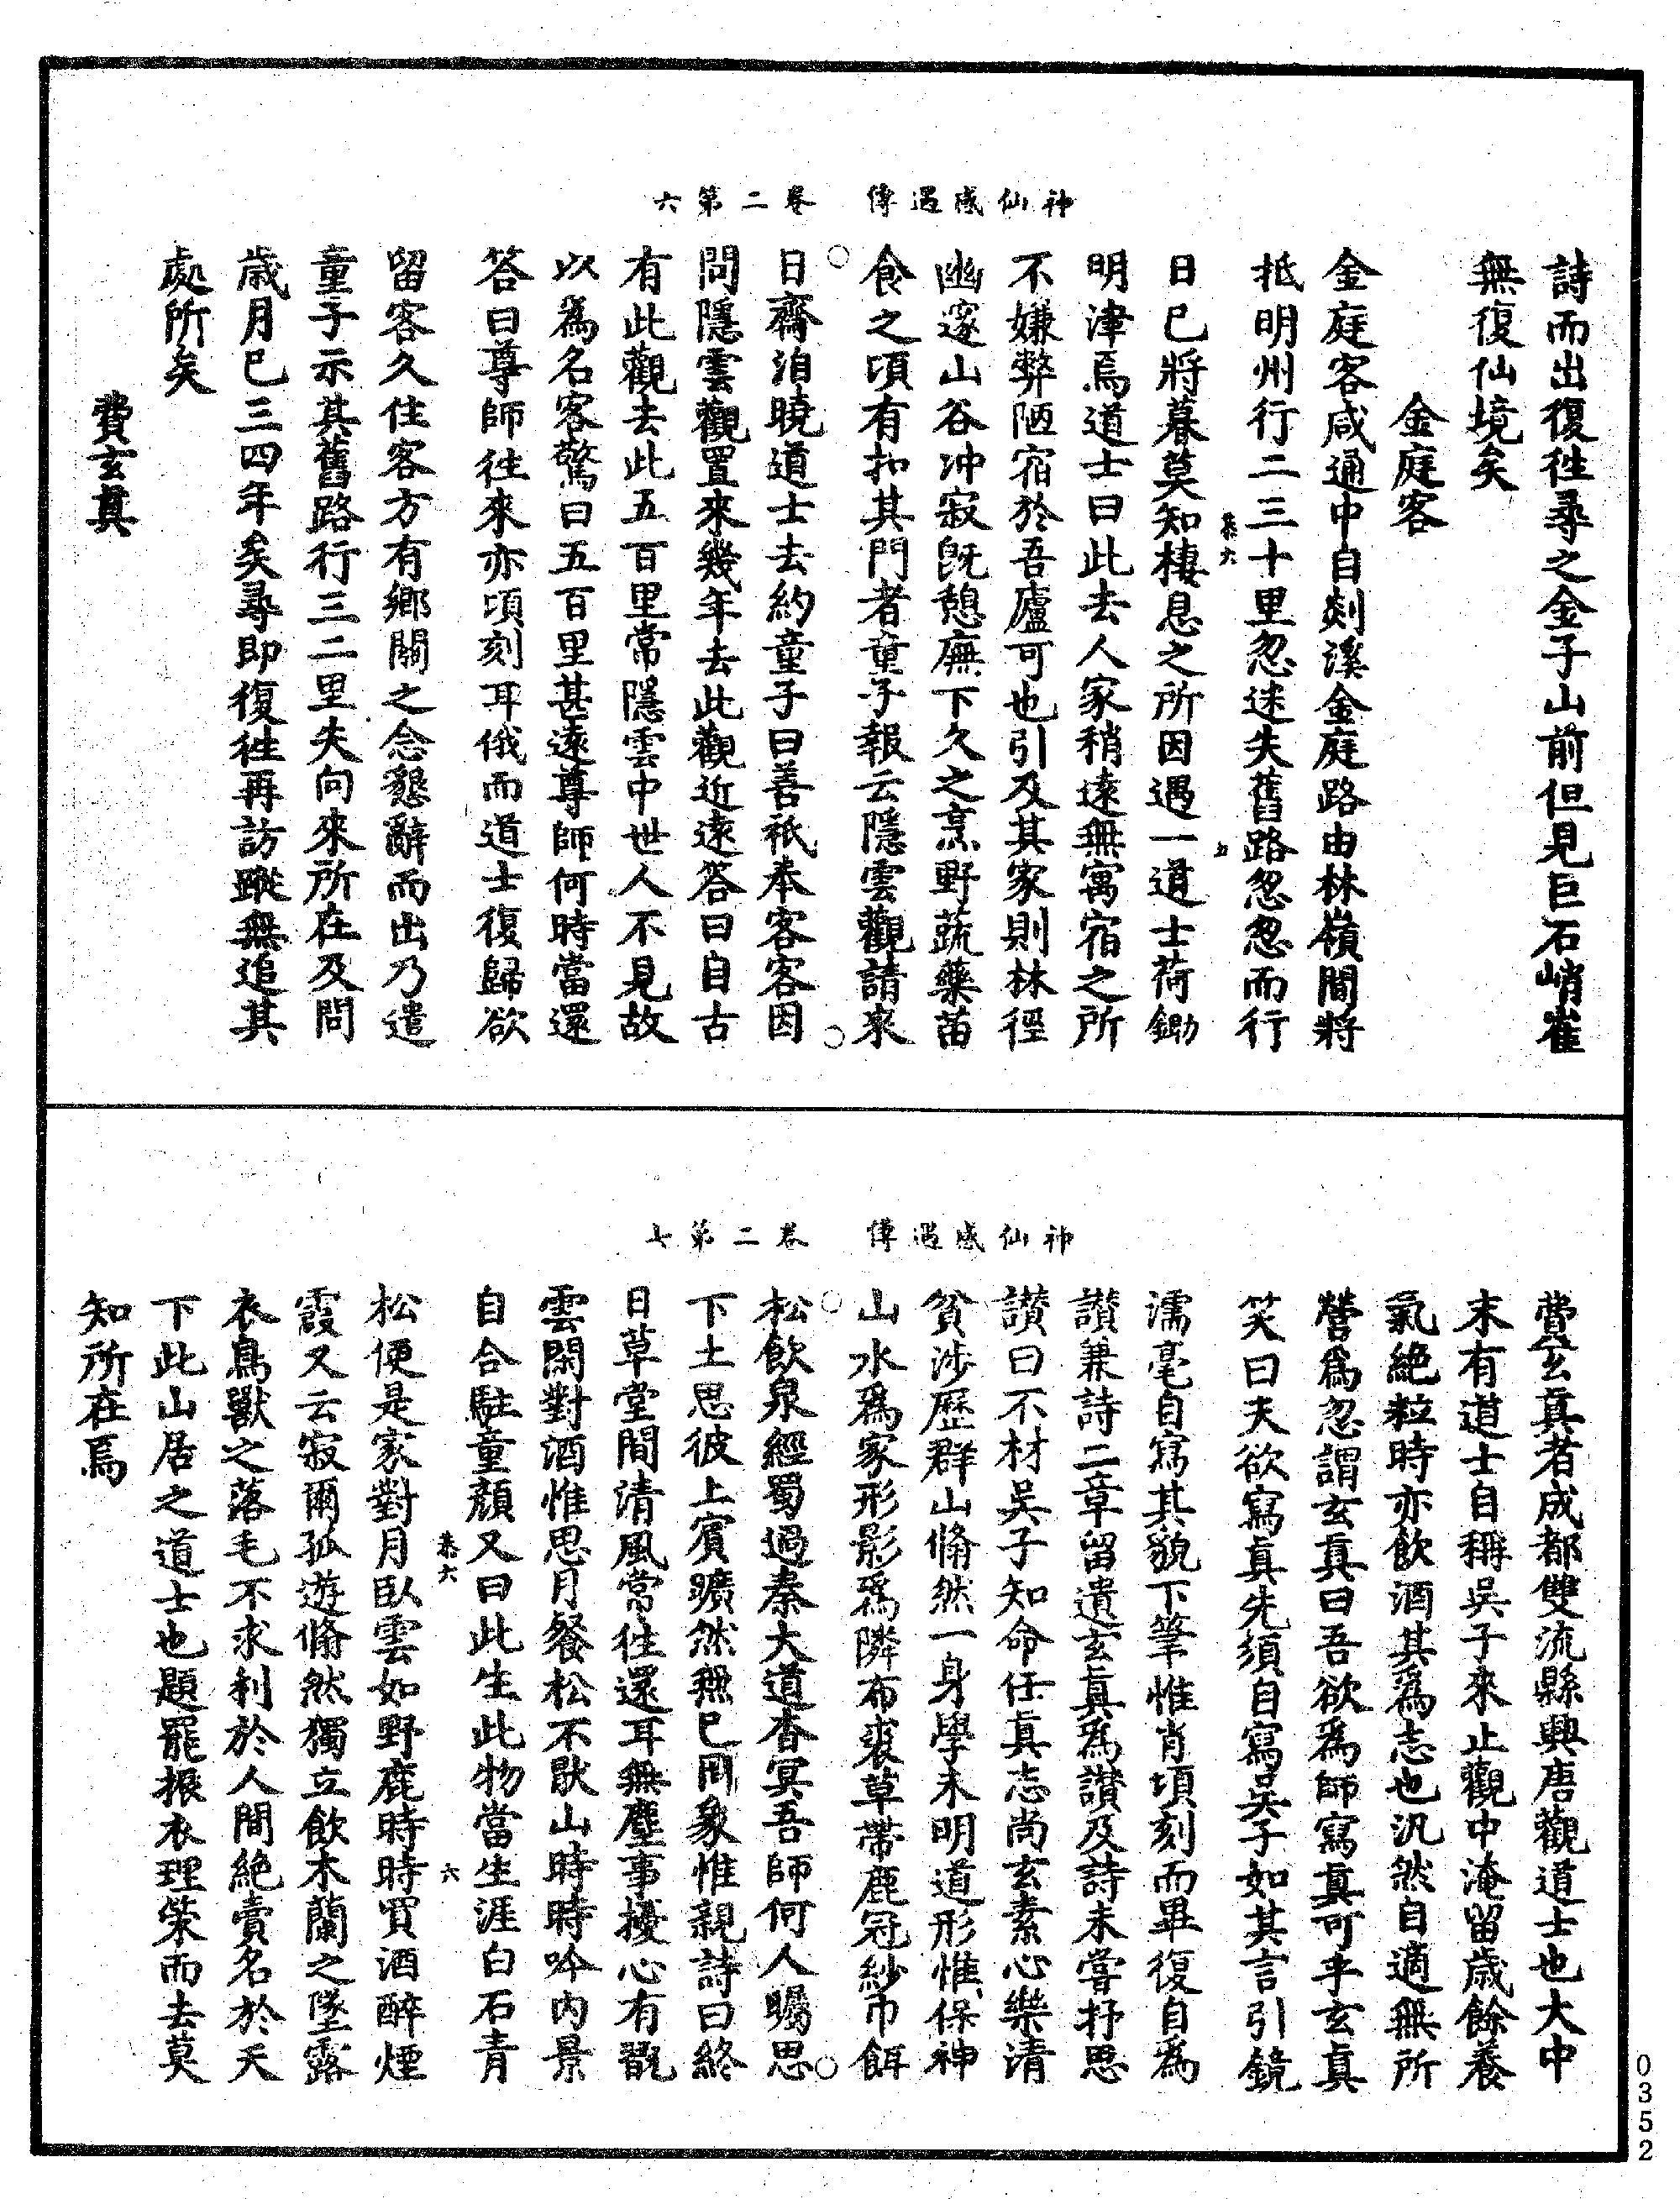 神仙感遇傳　卷二第六
詩而出復徃尋之金子山前但見巨石峭崔
無復仙境矣
金庭客
金庭客咸通中自剡溪金庭路由林嶺間將
抵明州行二三十里忽迷失舊路忽忽而行
恭六　五
日已將暮莫知棲息之所因遇一道士荷鋤
明津焉道士曰此去人家稍遠無寓宿之所
不嫌弊陋宿於吾廬可也引及其家則林徑
幽邃山谷冲寂旣憩廡下久之烹野蔬藥苗
食之頃有扣其門者童子報云隱雲觀請來
日齋洎曉道士去約童子曰善祇奉客客因
問隱雲觀置來幾年去此觀近遠答曰自古
有此觀去此五百里常隱雲中世人不見故
以爲名客驚曰五百里甚遠尊師何時當還
答曰尊師徃來亦頃刻耳俄而道士復歸欲
留客久住客方有鄉關之念懇辭而出乃遣
童子示其舊路行三二里失向來所在及問
歲月已三四年矣尋即復徃再訪蹤無追其
處所矣
費玄真
神仙感遇傳　卷二第七
費玄真者成都雙流縣興唐觀道士也大中
末有道士自稱吳子來止觀中淹留歲餘養
氣絶粒時亦飲酒其爲志也汎然自適無所
營爲忽謂玄真曰吾欲爲師寫真可乎玄真
笑曰夫欲寫真先須自寫吳子如其言引鏡
濡毫自寫其貌下筆惟肖頃刻而畢復自爲
讃兼詩二章留遺玄真爲讃及詩未嘗抒思
讃曰不材吳子知命任真志尚玄素心樂清
貧涉歷群山翛然一身學未明道形惟保神
山水爲家形影爲隣布裘草帶鹿冠紗巾餌
松飲泉經蜀過秦大道杳冥吾師何人矚思
下土思彼上賓曠然無已罔象惟親詩曰終
日草堂間清風常往還耳無塵事擾心有翫
雲閑對酒惟思月餐松不猒山時時吟內景
自合駐童顏又曰此生此物當生涯白石青
恭六　六
松便是家對月臥雲如野鹿時時買酒醉煙
霞又云寂爾孤遊翛然獨立飲木蘭之墜露
衣鳥獸之落毛不求利於人間絶賣名於天
下此山居之道士也題罷振衣理策而去莫
知所在焉
0352